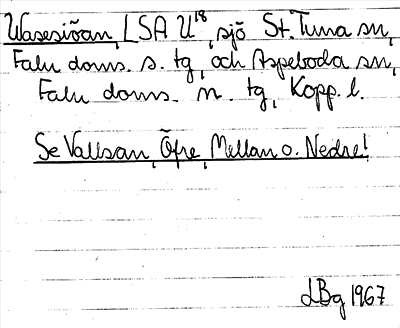 Wasesiöan, LSA U18, sjö St. Tuna sn,
Falu doms. s. tg, och Aspeboda sn,
Falu doms. n. tg, Kopp. l.
Se Vallsan, Öfre, Mellan o. Nedre!
LBg 1967